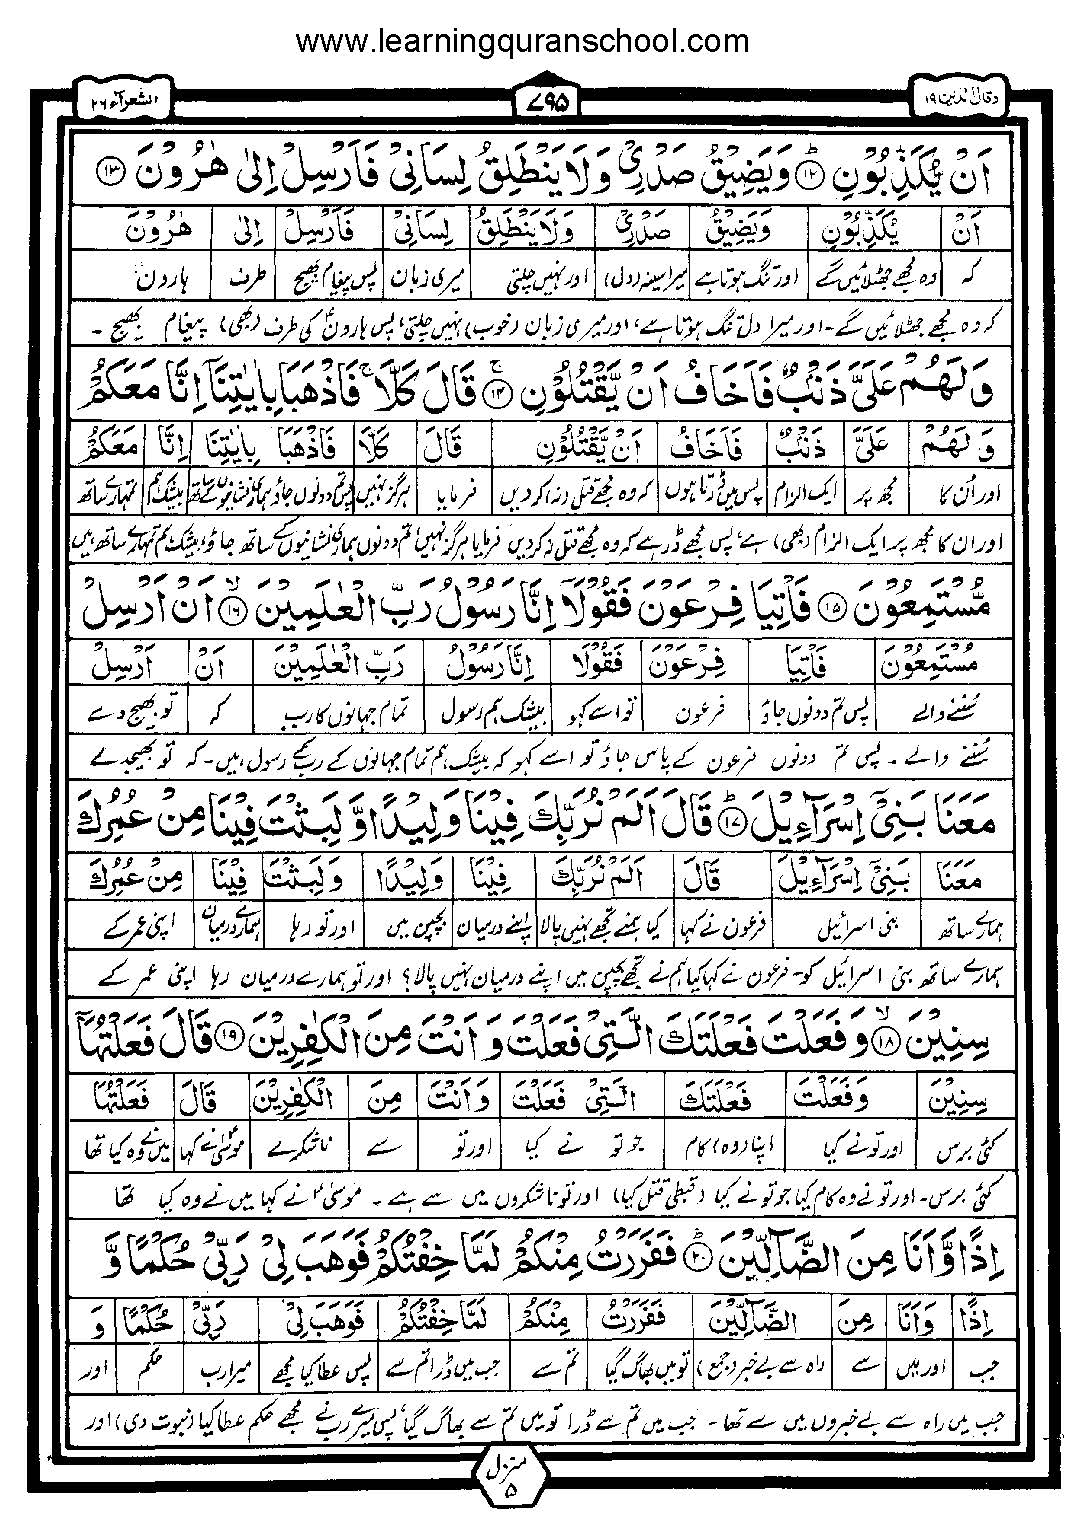 www.learningquranschool.com
وقال الذین ۱۹ ۷۹۵ الشعرآء ۲۶
اَنْ یُّكَذِّبُوْنِ ۱۲ وَیَضِیْقُ صَدْرِیْ وَلَا یَنْطَلِقُ لِسَانِیْ فَاَرْسِلْ اِلٰی هٰرُوْنَ ۱۳
اَنْ یُّكَذِّبُوْنِ وَیَضِیْقُ صَدْرِیْ وَلَا یَنْطَلِقُ لِسَانِیْ فَاَرْسِلْ اِلٰی هٰرُوْنَ
کہ وہ مجھے جھٹلائیں گے اور تنگ ہوتا ہے میرا سینہ (دل) اور نہیں چلتی میری زبان پس پیغام بھیج طرف ہارون
کہ وہ مجھے جھٹلائیں گے۔ اور میرا دل تنگ ہوتا ہے، اور میری زبان (خوب) نہیں چلتی، پس ہارون کی طرف (بھی) پیغام بھیج ۔
وَلَهُمْ عَلَیَّ ذَنْۢبٌ فَاَخَافُ اَنْ یَّقْتُلُوْنِ ۱۴ قَالَ كَلَّا فَاذْهَبَا بِاٰیٰتِنَاۤ اِنَّا مَعَكُمْ
وَلَهُمْ عَلَیَّ ذَنْۢبٌ فَاَخَافُ اَنْ یَّقْتُلُوْنِ قَالَ كَلَّا فَاذْهَبَا بِاٰیٰتِنَا اِنَّا مَعَكُمْ
اور اُن کا مجھ پر ایک الزام پس میں ڈرتا ہوں کہ وہ مجھے قتل (نہ) کر دیں فرمایا ہرگز نہیں پس تم دونوں جاؤ ہماری نشانیوں کے ساتھ بیشک ہم تمہارے ساتھ
اور ان کا مجھ پر ایک الزام (بھی) ہے، پس مجھے ڈر ہے کہ وہ مجھے قتل نہ کر دیں فرمایا ہرگز نہیں! تم دونوں ہماری نشانیوں کے ساتھ جاؤ، بیشک ہم تمہارے ساتھ ہیں
مُّسْتَمِعُوْنَ ۱۵ فَاْتِیَا فِرْعَوْنَ فَقُوْلَاۤ اِنَّا رَسُوْلُ رَبِّ الْعٰلَمِیْنَ ۱۶ اَنْ اَرْسِلْ
مُّسْتَمِعُوْنَ فَاْتِیَا فِرْعَوْنَ فَقُوْلَا اِنَّا رَسُوْلُ رَبِّ الْعٰلَمِیْنَ اَنْ اَرْسِلْ
سُننے والے پس تم دونوں جاؤ فرعون تو اسے کہو بیشک ہم رسول تمام جہانوں کا رب کہ تو بھیج دے
سُننے والے ۔ پس تم دونوں فرعون کے پاس جاؤ تو اسے کہو کہ بیشک ہم تمام جہانوں کے رب کے رسول ہیں۔ کہ تو بھیجدے
مَعَنَا بَنِیْۤ اِسْرَآءِیْلَ ۱۷ قَالَ اَلَمْ نُرَبِّكَ فِیْنَا وَلِیْدًا وَّلَبِثْتَ فِیْنَا مِنْ عُمُرِكَ
مَعَنَا بَنِیْۤ اِسْرَآءِیْلَ قَالَ اَلَمْ نُرَبِّكَ فِیْنَا وَلِیْدًا وَلَبِثْتَ فِیْنَا مِنْ عُمُرِكَ
ہمارے ساتھ بنی اسرائیل فرعون نے کہا کیا ہم نے تجھے نہیں پالا اپنے درمیان بچپن میں اور تو رہا ہمارے درمیان اپنی عمر کے
ہمارے ساتھ بنی اسرائیل کو۔ فرعون نے کہا کیا ہم نے تجھے بچپن میں اپنے درمیان نہیں پالا؟ اور تو ہمارے درمیان رہا اپنی عمر کے
سِنِیْنَ ۱۸ وَفَعَلْتَ فَعْلَتَكَ الَّتِیْ فَعَلْتَ وَاَنْتَ مِنَ الْكٰفِرِیْنَ ۱۹ قَالَ فَعَلْتُهَاۤ
سِنِیْنَ وَفَعَلْتَ فَعْلَتَكَ الَّتِیْ فَعَلْتَ وَاَنْتَ مِنَ الْكٰفِرِیْنَ قَالَ فَعَلْتُهَا
کئی برس اور تو نے کیا اپنا (وہ) کام جو تو نے کیا اور تو سے ناشکرے موسیٰ نے کہا میں نے وہ کیا تھا
کئی برس۔ اور تو نے وہ کام کیا جو تو نے کیا (قبطی قتل کیا) اور تو ناشکروں میں سے ہے ۔ موسیٰ نے کہا میں نے وہ کیا تھا
اِذًا وَّاَنَا مِنَ الضَّآلِّیْنَ ۲۰ فَفَرَرْتُ مِنْكُمْ لَمَّا خِفْتُكُمْ فَوَهَبَ لِیْ رَبِّیْ حُكْمًا وَّ
اِذًا وَاَنَا مِنَ الضَّآلِّیْنَ فَفَرَرْتُ مِنْكُمْ لَمَّا خِفْتُكُمْ فَوَهَبَ لِیْ رَبِّیْ حُكْمًا وَ
جب اور میں سے راہ سے بے خبر (جمع) تو میں بھاگ گیا تم سے جب میں ڈرا تم سے پس عطا کیا مجھے میرا رب حکم اور
جب میں راہ سے بے خبروں میں سے تھا ۔ جب میں تم سے ڈرا تو میں تم سے بھاگ گیا، پس میرے رب نے مجھے حکم عطا کیا (نبوت دی) اور
منزل
۵